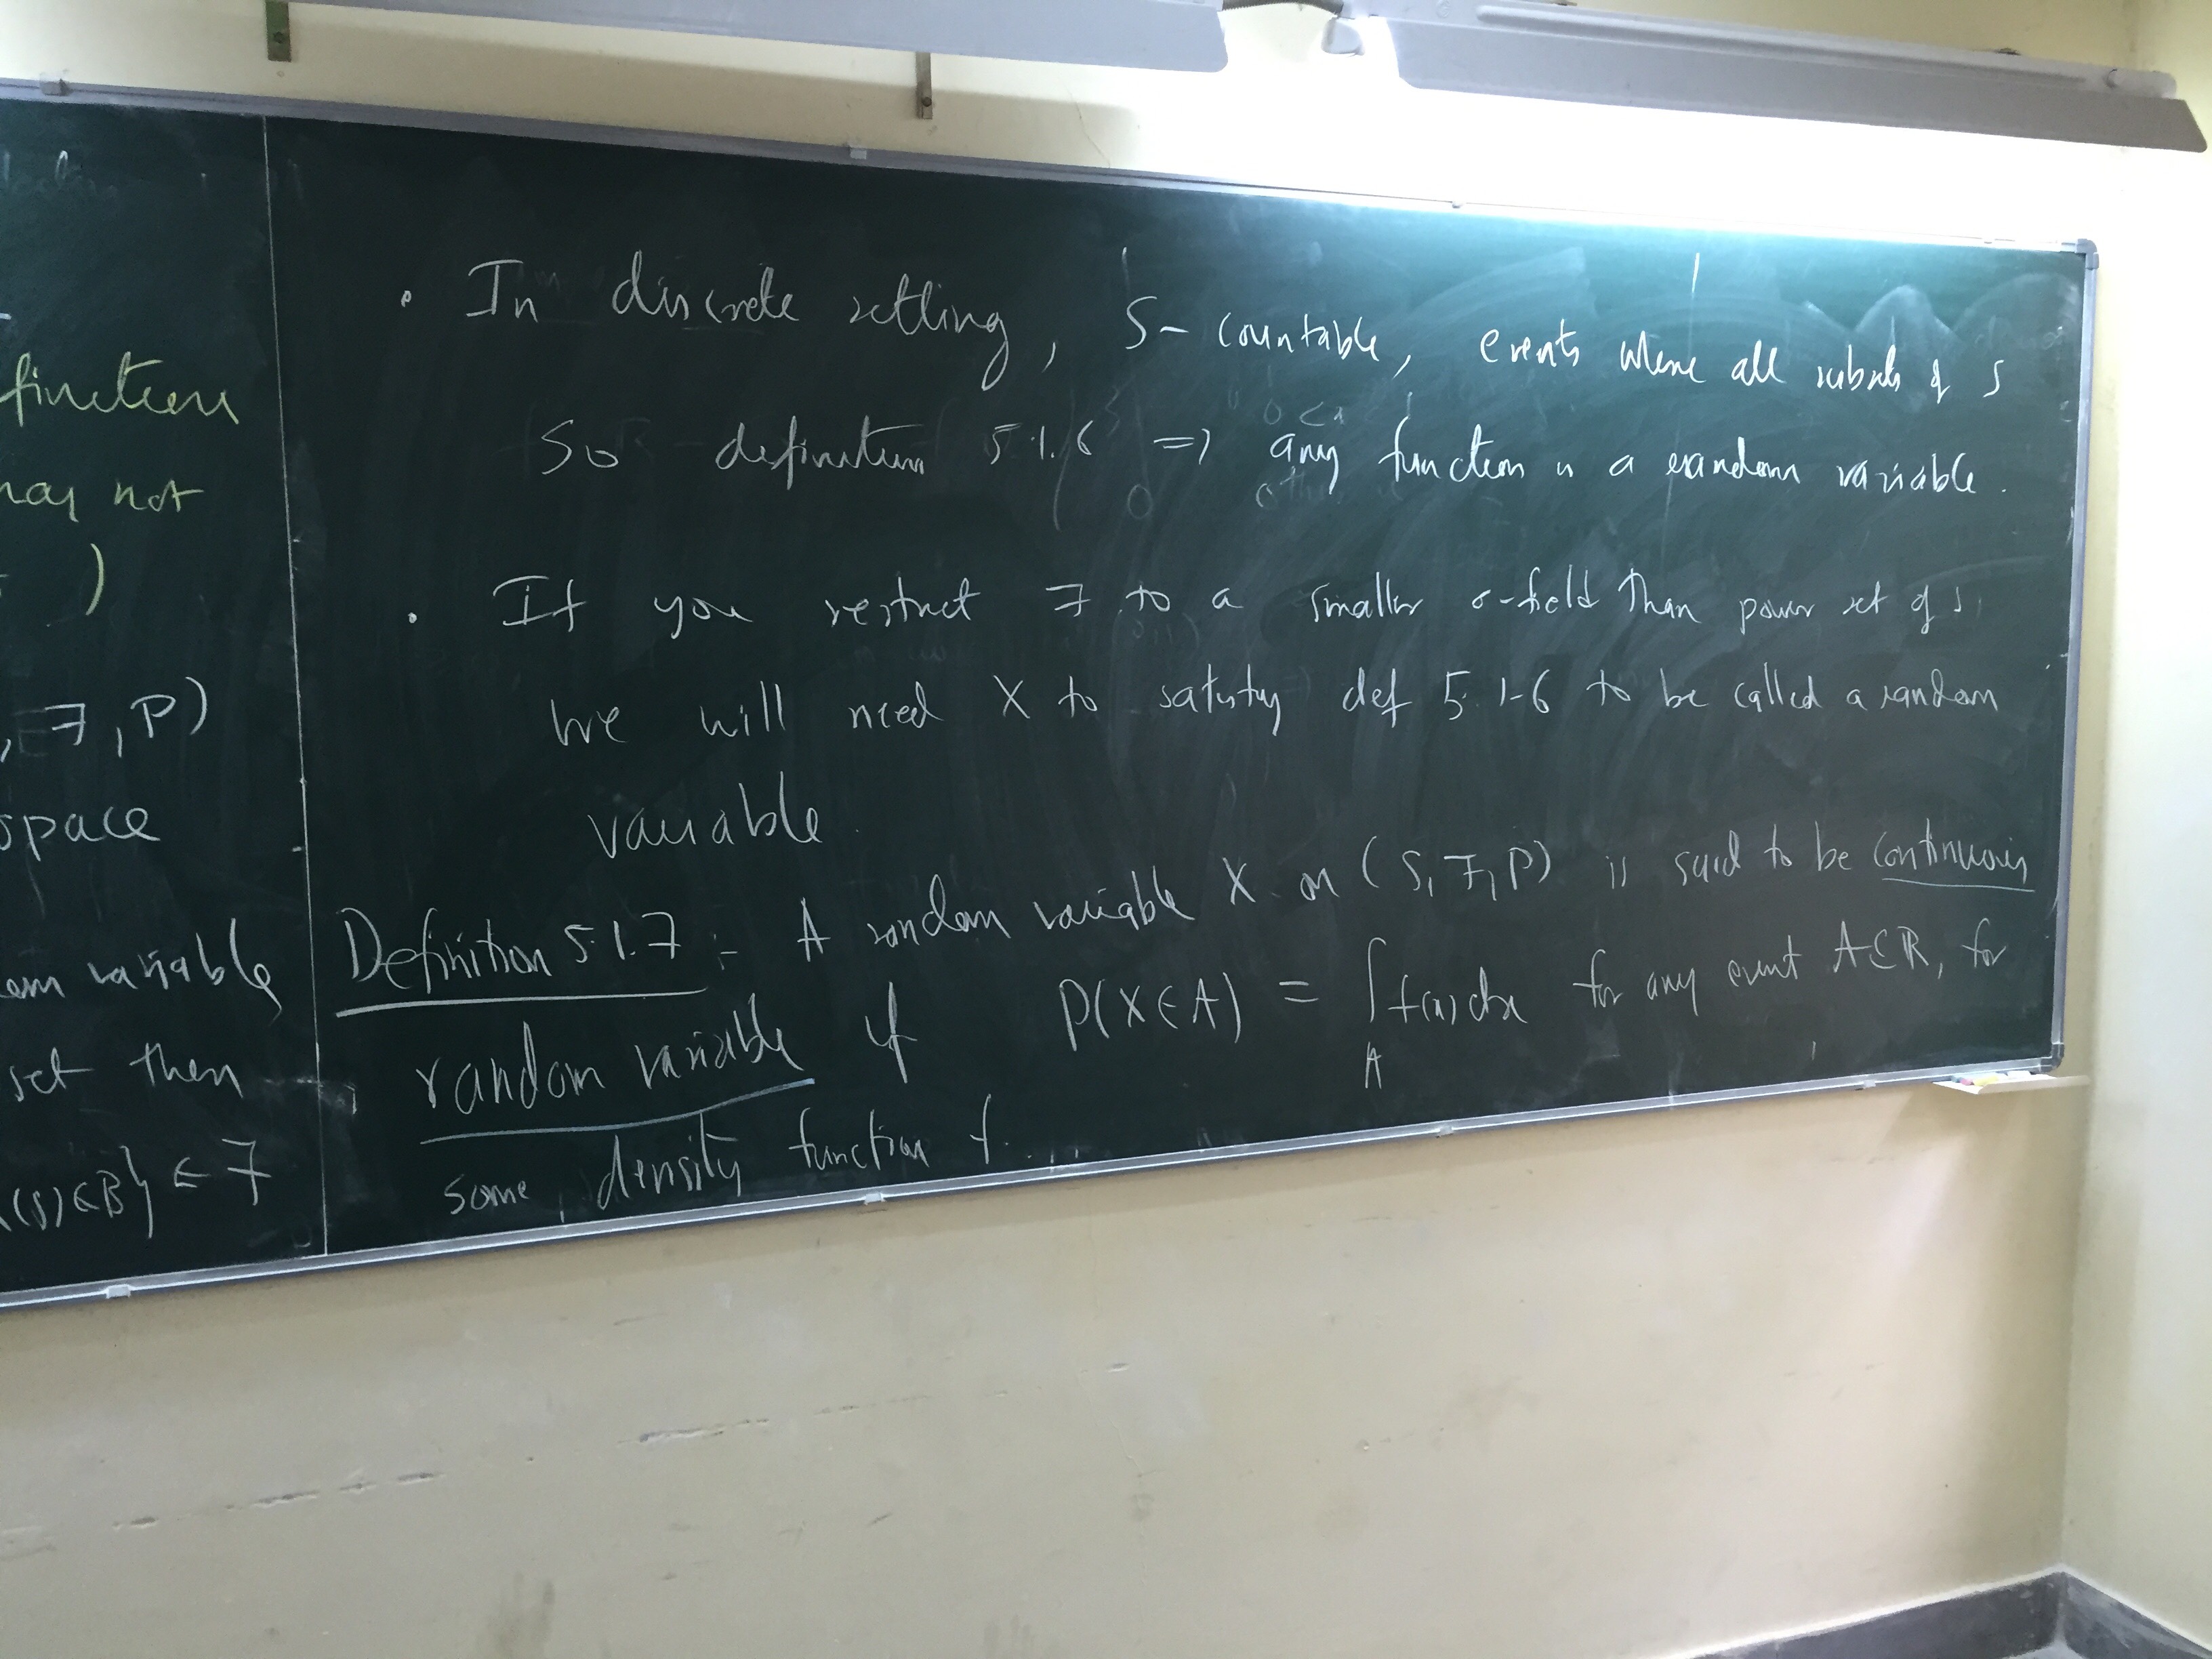 finition
may not
)
, F, P)
space
om variable
set then
(s) ∈ B} ∈ F
. In discrete setting, S - countable, events where all subsets of S
So definition 5.1.6 => any function is a random variable.
. If you restrict F to a smaller σ-field than power set of S,
we will need X to satisfy def 5.1.6 to be called a random
variable.
Definition 5.1.7 :- A random variable X on (S, F, P) is said to be continuous
random variable if P(X ∈ A) = ∫_A f(x) dx for any event A ⊂ R, for
some density function f.